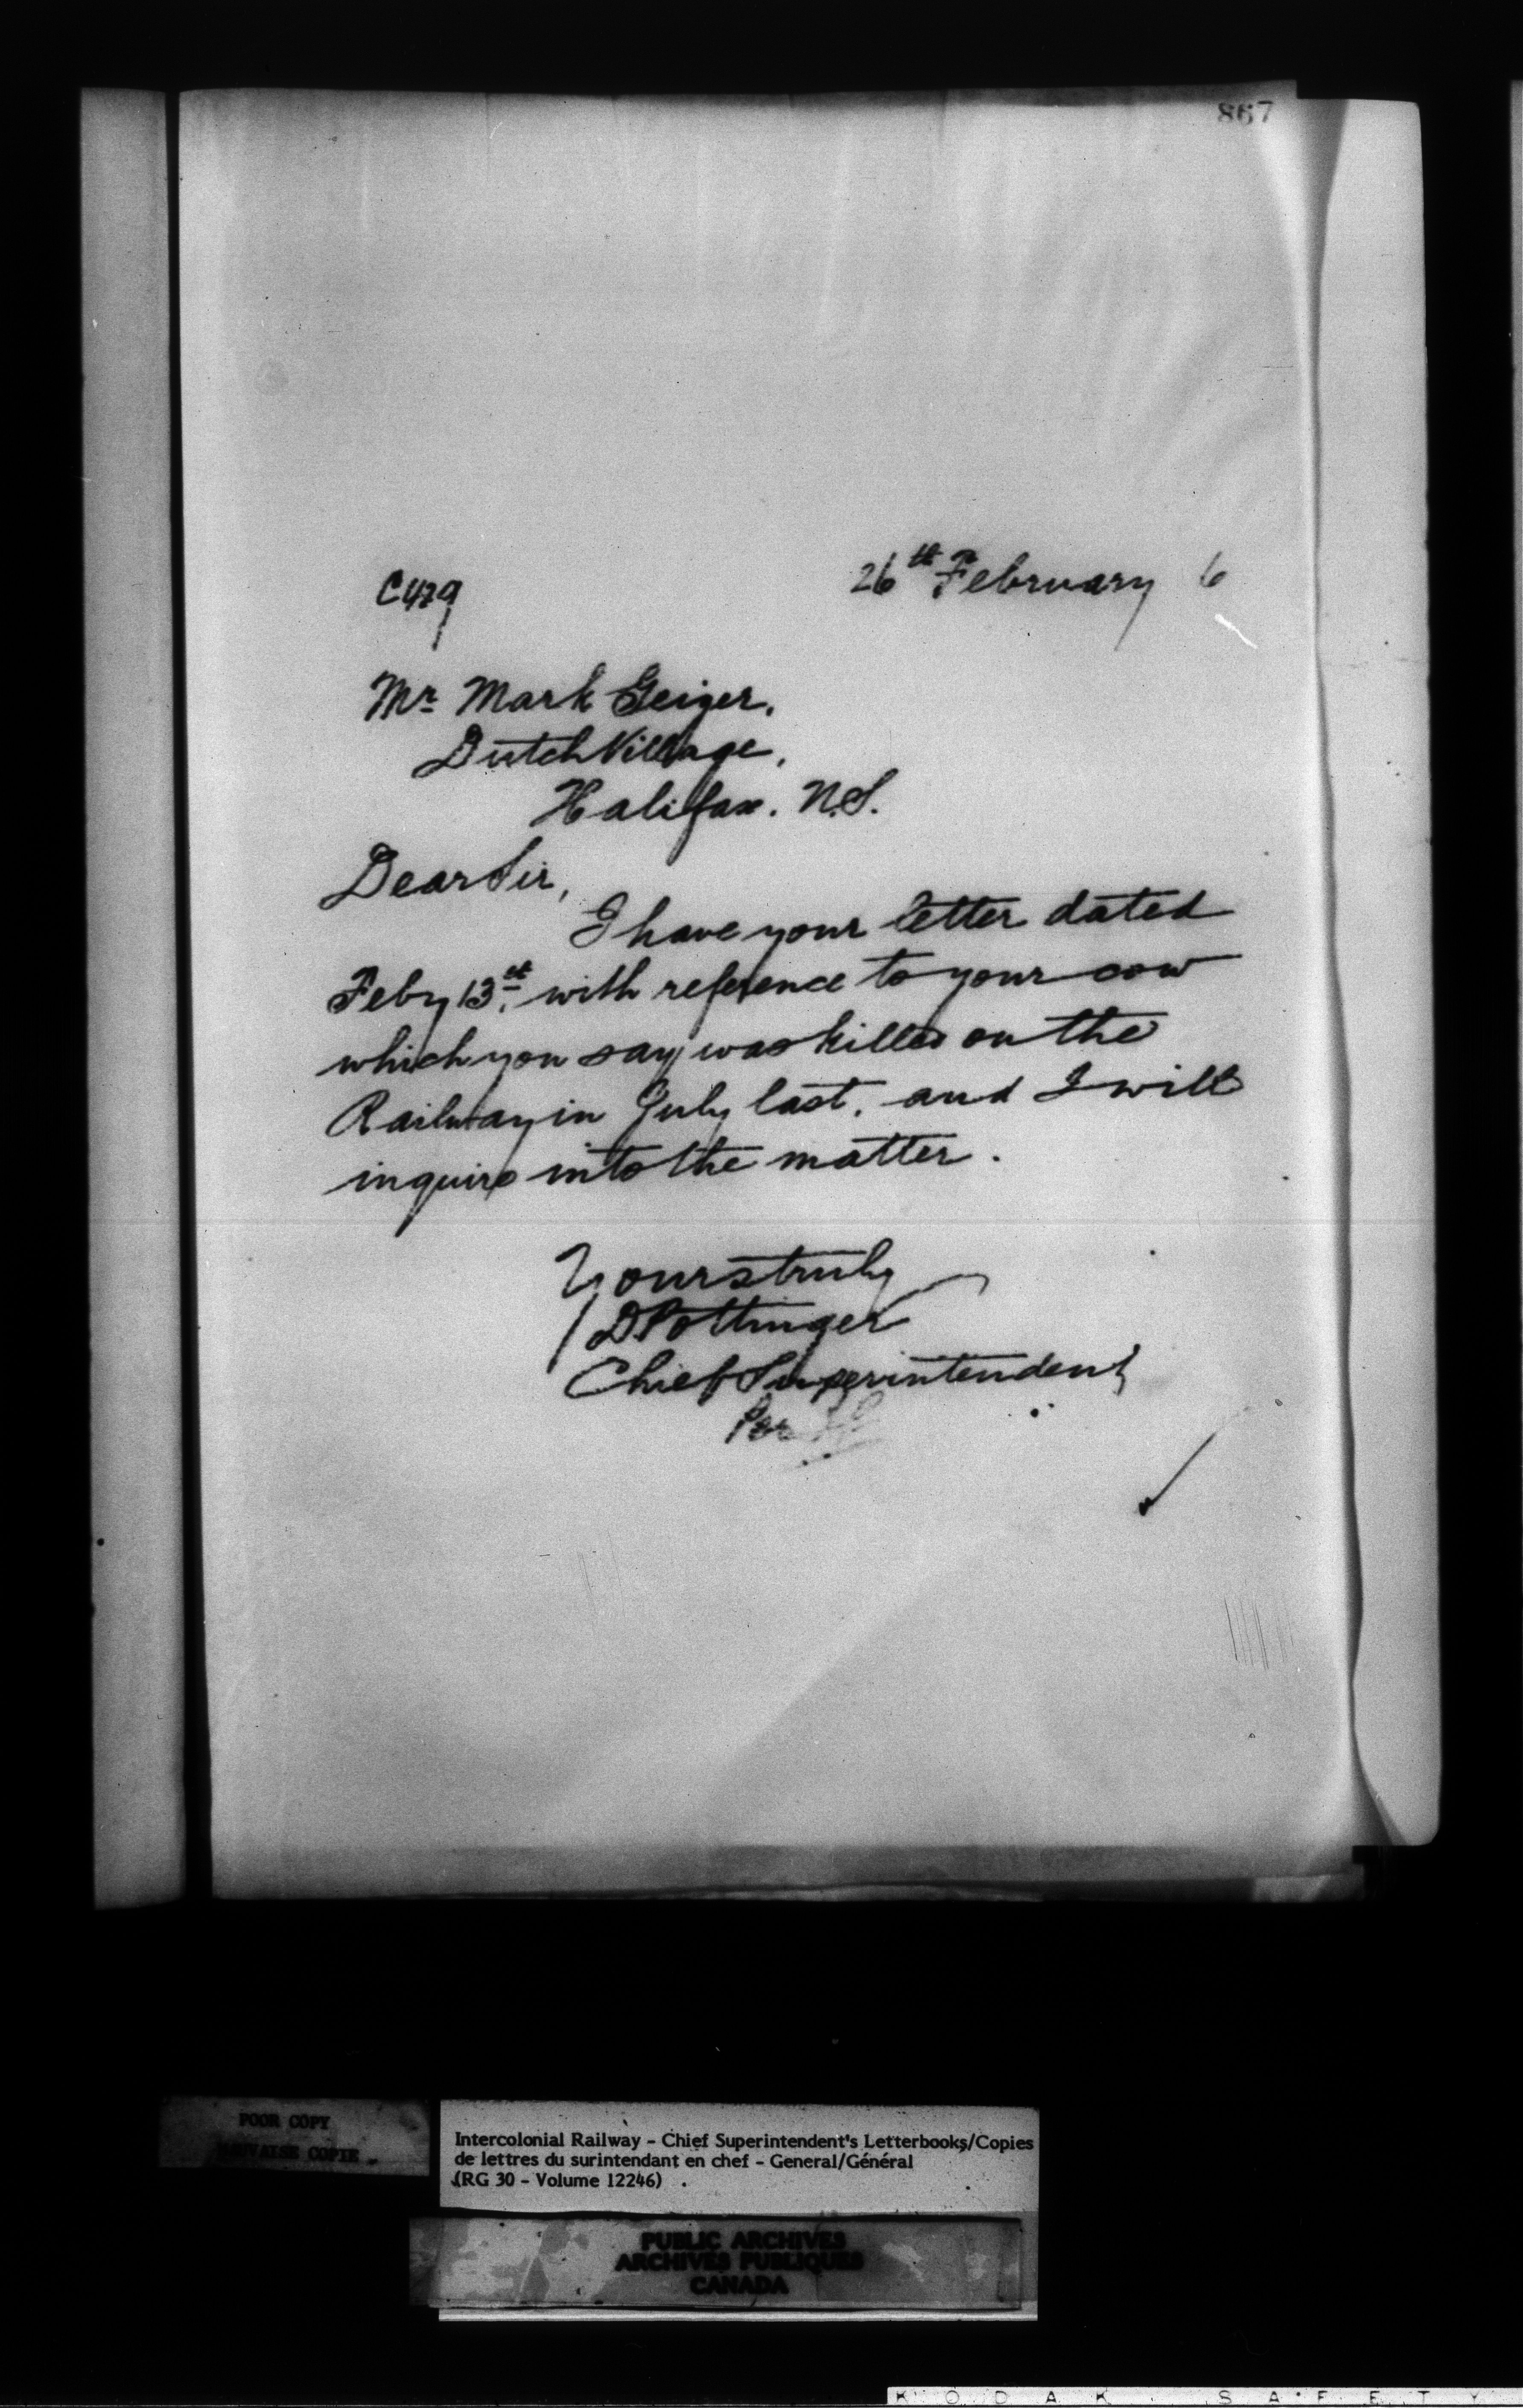 867
26th February 6
C479
Mr Mark Geizer,
Dutch Village,
Halifax. N.S.
Dear Sir,
I have your letter dated
Feby 13th. with reference to your cow
which you say was killed on the
Railway in July last, and I will
inquire into the matter.
Yours truly
D Pottinger
Chief Superintendent
Per
POOR COPY
MAUVAISE COPIE
Intercolonial Railway - Chief Superintendent's Letterbooks/Copies
de lettres du surintendant en chef - General/Général
(RG 30 - Volume 12246)
PUBLIC ARCHIVES
ARCHIVES PUBLIQUES
CANADA
KODAK SAFETY